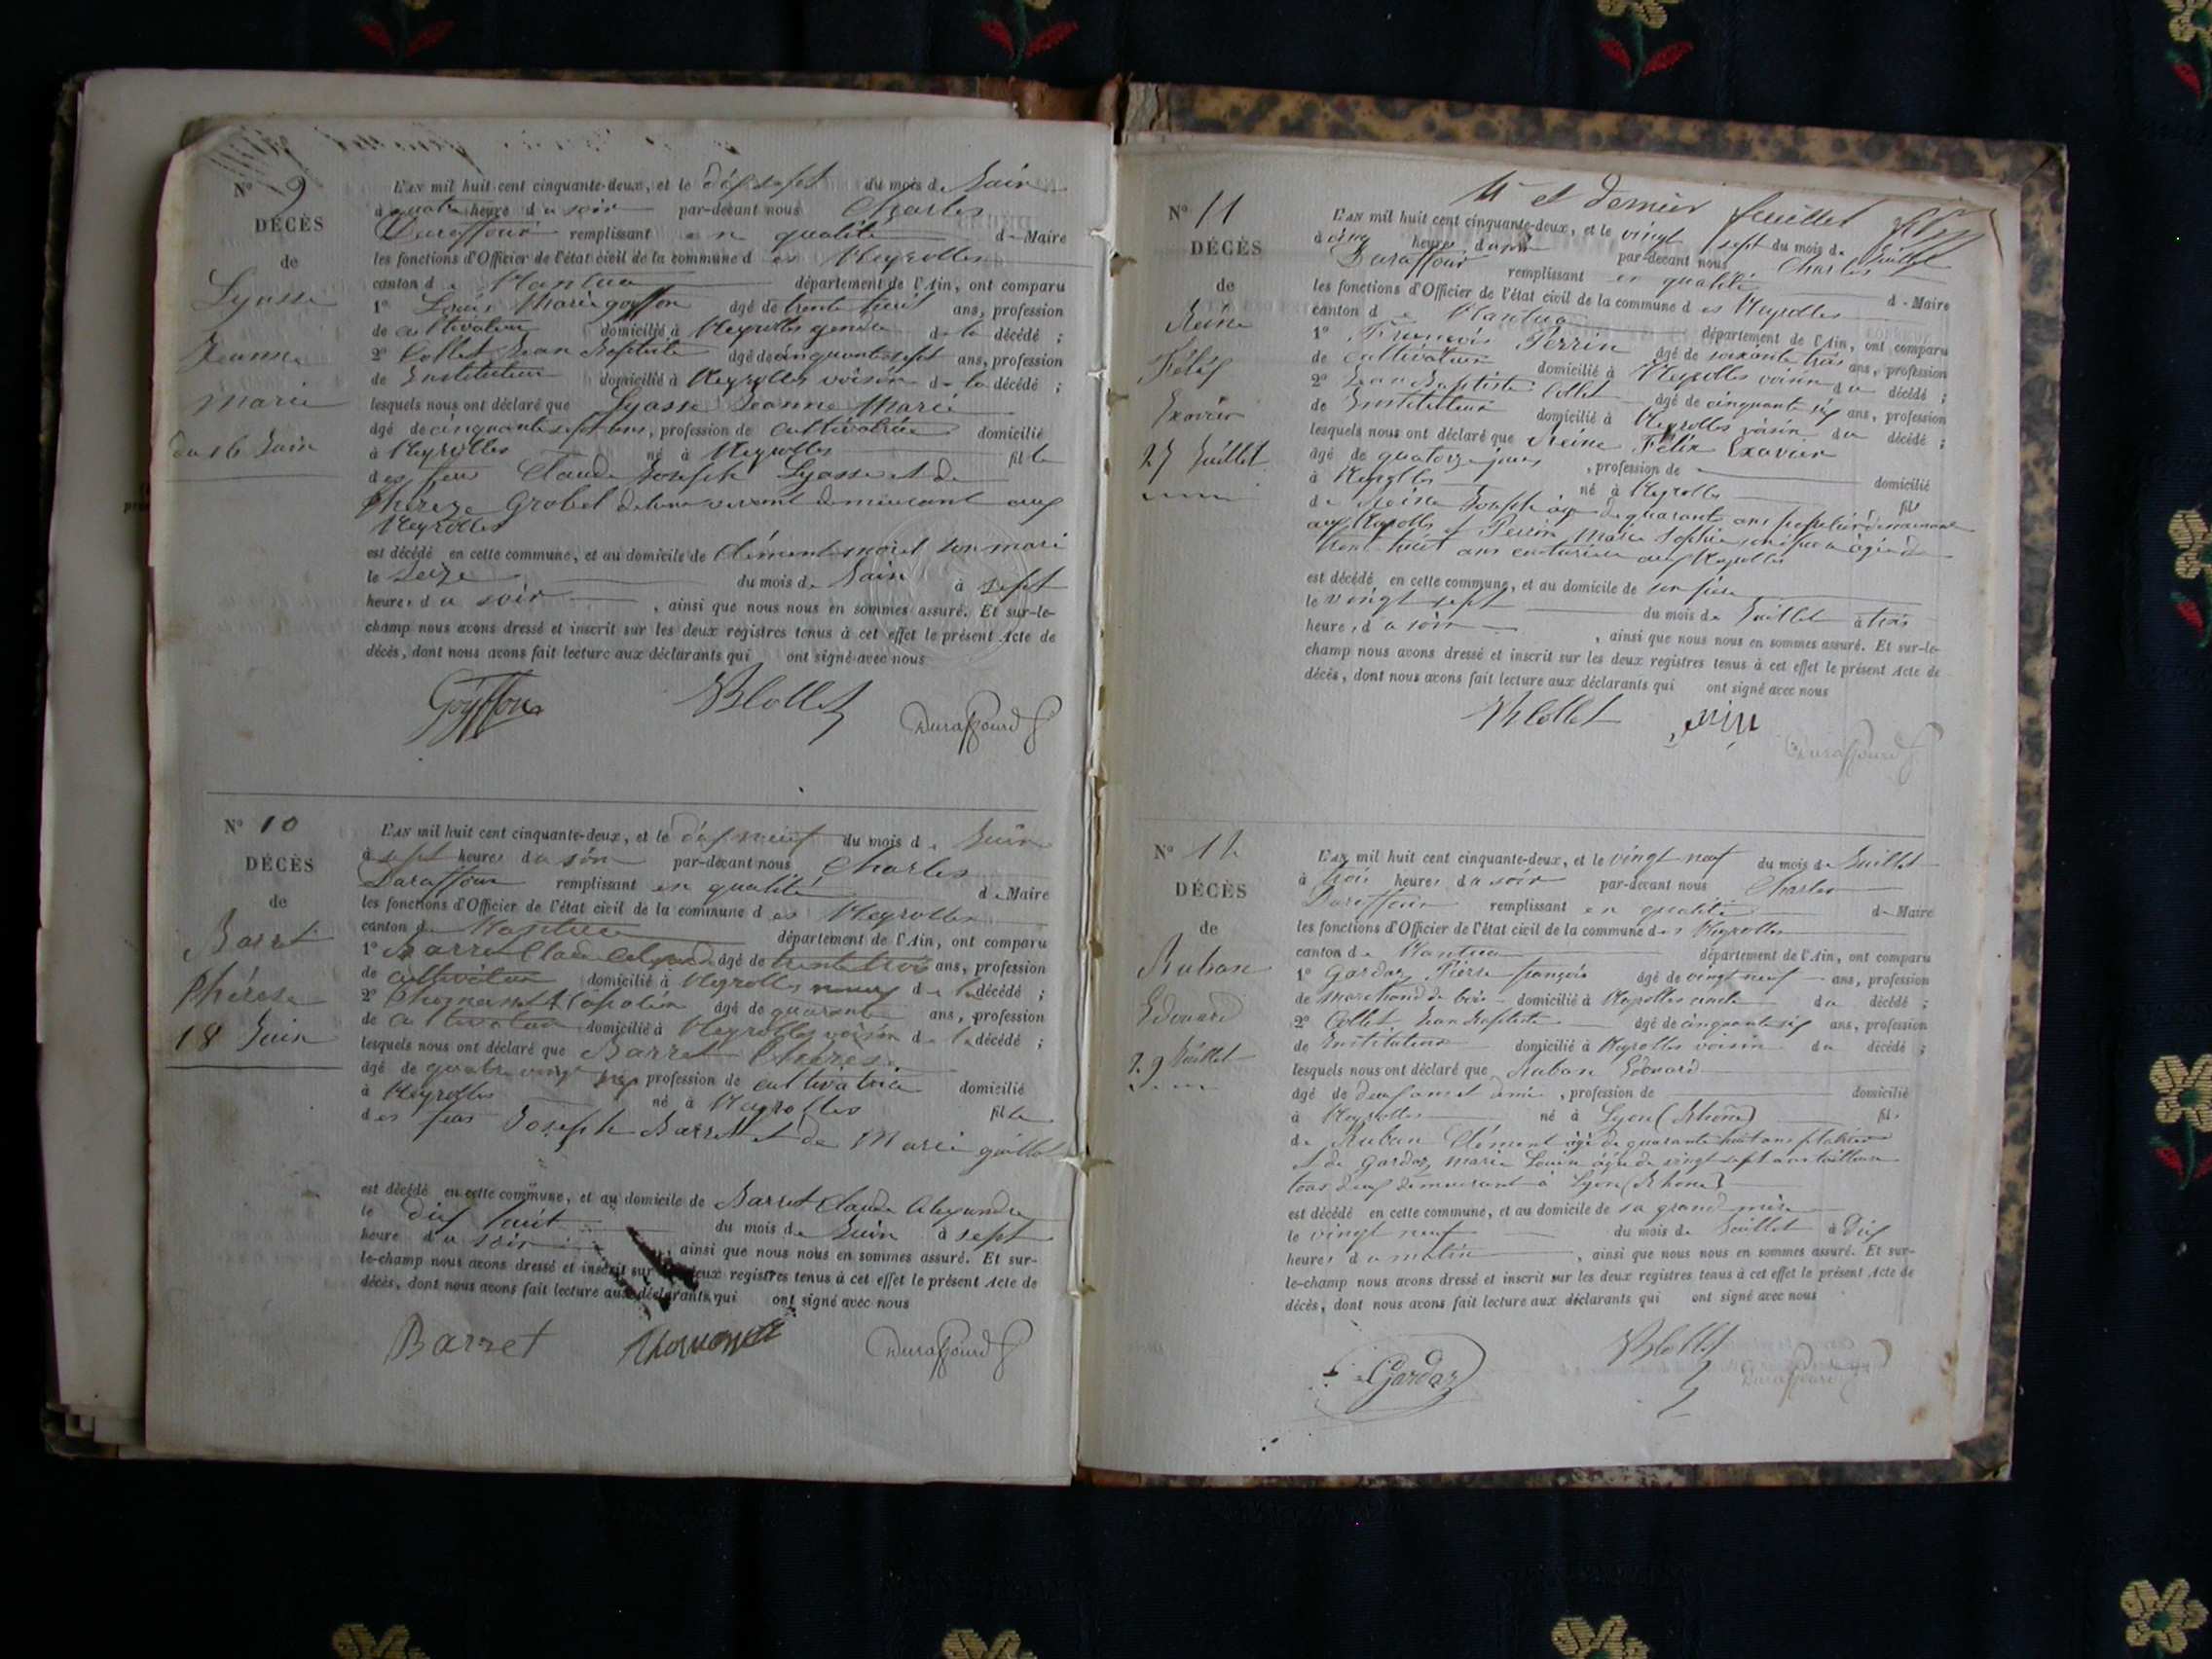 N° 9
DÉCÈS
de
Lyasse
Jeanne
Marie
du 16 Juin
L'AN mil huit cent cinquante-deux, et le dix sept du mois de Juin
à quatre heure du soir par-devant nous Charles
Duraffour remplissant en qualité de Maire
les fonctions d'Officier de l'état civil de la commune des Neyrolles
canton de Nantua département de l'Ain, ont comparu
1° Louis Marie goyffon âgé de trente huit ans, profession
de cultivateur domicilié à Neyrolles gendre de la décédé ;
2° Collet Jean Baptiste âgé de cinquante sept ans, profession
de Instituteur domicilié à Neyrolles voisin de la décédé ;
lesquels nous ont déclaré que Lyasse Jeanne Marie
âgé de cinquante sept ans, profession de cultivatrice domicilié
à Neyrolles né à Neyrolles fille
des feu Claude Joseph Lyasse et de
Thérèze Grobel de leur vivant demeurant aux
Neyrolles
est décédé en cette commune, et au domicile de Clément moret son mari
le seize du mois de Juin à sept
heures du soir , ainsi que nous nous en sommes assuré. Et sur-le-
champ nous avons dressé et inscrit sur les deux registres tenus à cet effet le présent Acte de
décès, dont nous avons fait lecture aux déclarants qui ont signé avec nous
Goyffon JB Collet Duraffourd
N° 10
DÉCÈS
de
Barret
Thérèse
18 Juin
L'AN mil huit cent cinquante-deux, et le dix neuf du mois de Juin
à sept heures du soir par-devant nous Charles
Duraffour remplissant en qualité de Maire
les fonctions d'Officier de l'état civil de la commune des Neyrolles
canton de Nantua département de l'Ain, ont comparu
1° Barret Claude âgé de trente trois ans, profession
de cultivateur domicilié à Neyrolles neveu de la décédé ;
2° Napoléon âgé de quarante ans, profession
de cultivateur domicilié à Neyrolles voisin de la décédé ;
lesquels nous ont déclaré que Barret Thérèse
âgé de quatre vingt profession de cultivatrice domicilié
à Neyrolles né à Neyrolles fille
des feus Joseph Barret et de Marie guillot
est décédé en cette commune, et au domicile de Barret Claude Alexandre
le dix huit du mois de Juin à sept
heure du soir , ainsi que nous nous en sommes assuré. Et sur-
le-champ nous avons dressé et inscrit sur les deux registres tenus à cet effet le présent Acte de
décès, dont nous avons fait lecture aux déclarants qui ont signé avec nous
Barret Duraffourd
et dernier feuillet
N° 11
DÉCÈS
de
Reine
Félix
Exavier
27 Juillet
L'AN mil huit cent cinquante-deux, et le vingt sept du mois de Juillet
à cinq heures du soir par-devant nous Charles
Duraffour remplissant en qualité de Maire
les fonctions d'Officier de l'état civil de la commune des Neyrolles
canton de Nantua département de l'Ain, ont comparu
1° François Perrin âgé de soixante trois ans, profession
de cultivateur domicilié à Neyrolles voisin du décédé ;
2° Jean Baptiste Collet âgé de cinquante six ans, profession
de Instituteur domicilié à Neyrolles voisin du décédé ;
lesquels nous ont déclaré que Reine Félix Exavier
âgé de quatorze jours , profession de domicilié
à Neyrolles né à Neyrolles fils
de Reine Joseph âgé de quarante ans demeurant
aux Neyrolles et Perrin Marie Sophie âgée de
trente huit ans couturière aux Neyrolles
est décédé en cette commune, et au domicile de son père
le vingt sept du mois de Juillet à trois
heure, du soir , ainsi que nous nous en sommes assuré. Et sur-le-
champ nous avons dressé et inscrit sur les deux registres tenus à cet effet le présent Acte de
décès, dont nous avons fait lecture aux déclarants qui ont signé avec nous
JB Collet Duraffourd
N° 12
DÉCÈS
de
Ruban
Edouard
29 Juillet
L'AN mil huit cent cinquante-deux, et le vingt neuf du mois de Juillet
à trois heures du soir par-devant nous Charles
Duraffour remplissant en qualité de Maire
les fonctions d'Officier de l'état civil de la commune des Neyrolles
canton de Nantua département de l'Ain, ont comparu
1° Gardaz Pierre françois âgé de vingt neuf ans, profession
de marchand de bois domicilié à Neyrolles oncle du décédé ;
2° Collet Jean Baptiste âgé de cinquante six ans, profession
de Instituteur domicilié à Neyrolles voisin du décédé ;
lesquels nous ont déclaré que Ruban Edouard
âgé de deux ans et demi , profession de domicilié
à Neyrolles né à Lyon (Rhône) fils
de Ruban Clément âgé de quarante huit ans plâtrier
et de Gardaz marie Louise âgée de vingt sept ans tailleuse
tous deux demeurant à Lyon (Rhône)
est décédé en cette commune, et au domicile de sa grand mère
le vingt neuf du mois de Juillet à dix
heures du matin , ainsi que nous nous en sommes assuré. Et sur-
le-champ nous avons dressé et inscrit sur les deux registres tenus à cet effet le présent Acte de
décès, dont nous avons fait lecture aux déclarants qui ont signé avec nous
Gardaz JB Collet Duraffourd